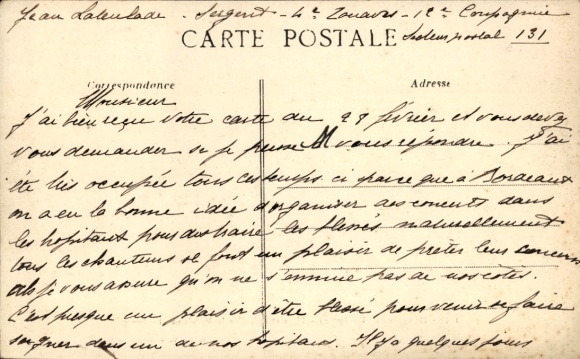 Jean Lateulade - Sergent - 4e Zouaves - 12e Compagnie
CARTE POSTALE
Secteur postal 131
Correspondance
Adresse
Monsieur
J'ai bien reçu votre carte du 28 février et vous devez
vous demander si je pense M vous répondre. J'ai
été très occupée tous ces temps ci parce que à Bordeaux
on a eu la bonne idée d'organiser des concerts dans
les hopitaux pour distraire les blessés naturellement
tous les chanteurs se font un plaisir de prêter leur concours
et je vous assure qu'on ne s'ennuie pas de nos cotés.
C'est presque un plaisir d'être blessé pour venir se faire
soigner dans un de nos hopitaux. Il y a quelques jours